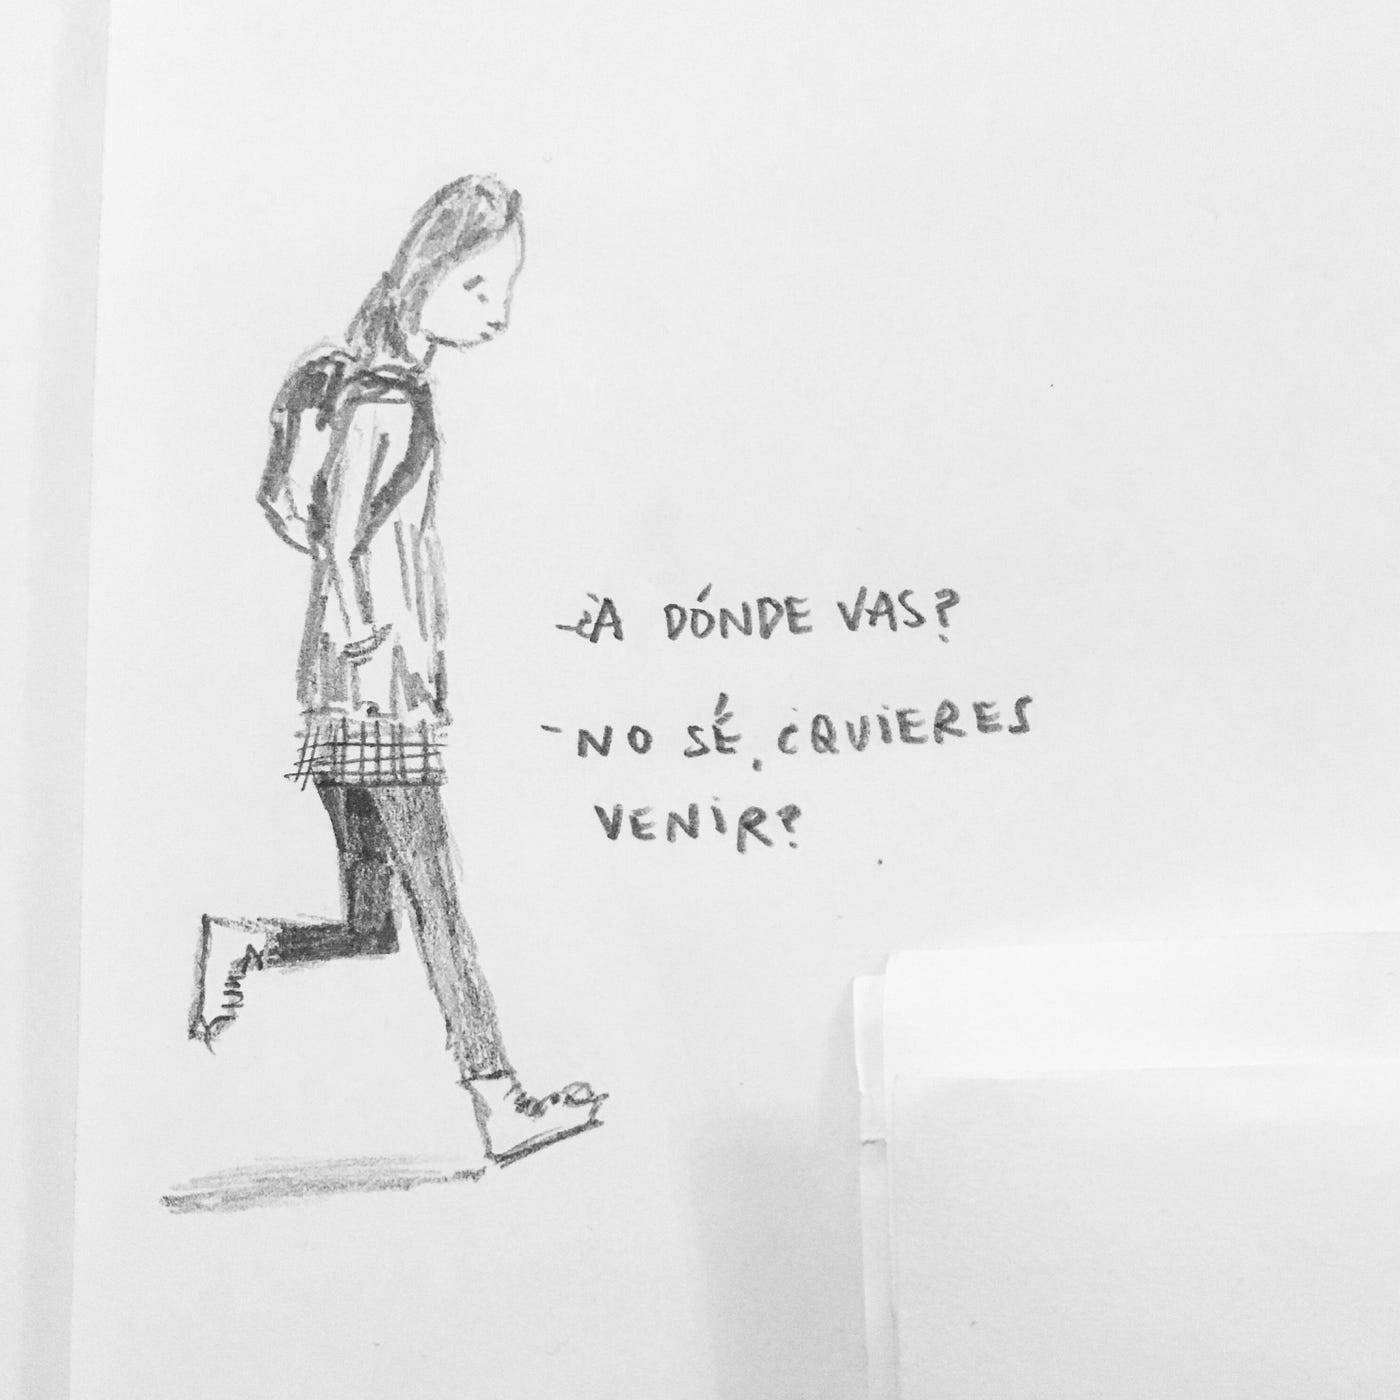 -¿A DÓNDE VAS?
-NO SÉ, ¿QUIERES
VENIR?